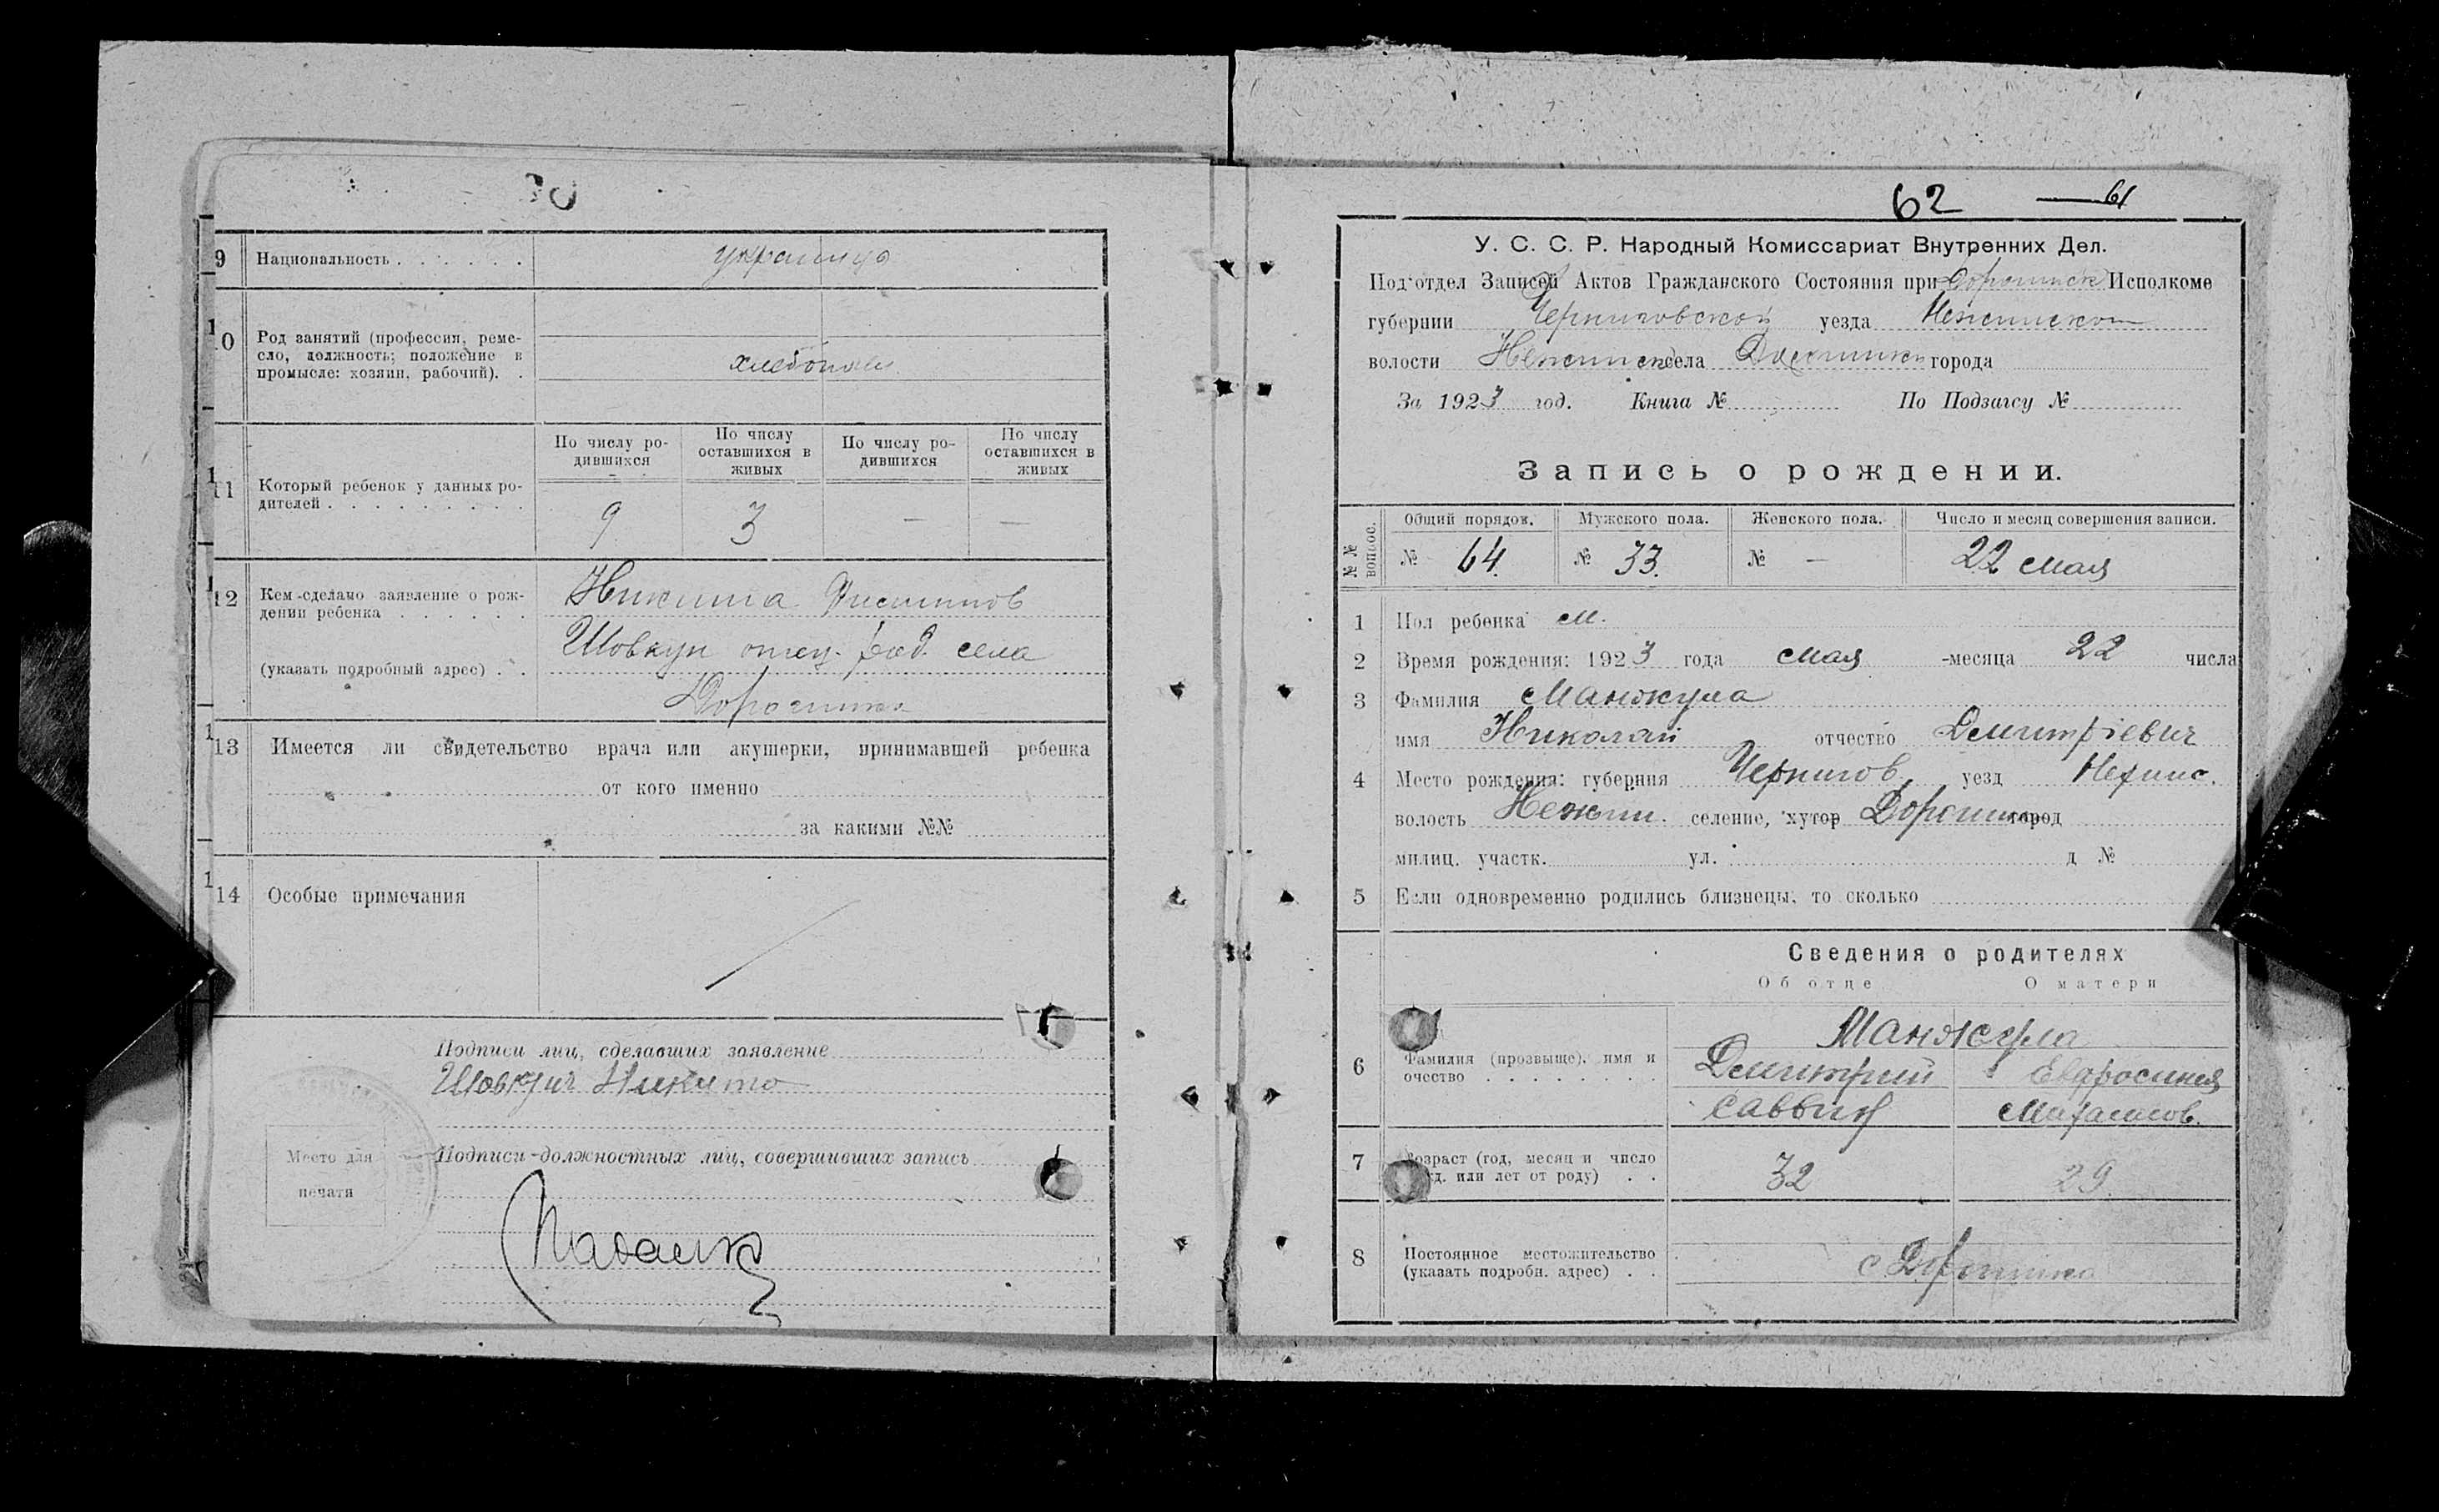 9 Национальность . . . . . . украинцы
10 Род занятий (профессия, реме-
сло, должность; положение в
промысле: хозяин, рабочий). . хлебопаш.
11 Который ребенок у данных ро-
дителей . . . . . . . . .
По числу ро-
дившихся
По числу
оставшихся в
живых
По числу ро-
дившихся
По числу
оставшихся в
живых
9 3 — —
12 Кем сделано заявление о рож-
дении ребенка . . . . . .
(указать подробный адрес) . .
Никита
Шовкун отец села
13 Имеется ли свидетельство врача или акушерки, принимавшей ребенка
от кого именно
за какими №№
14 Особые примечания
Подписи лиц, сделавших заявление
Шовкун Никита
Место для
печати
Подписи должностных лиц, совершивших запись
62 — 61
У. С. С. Р. Народный Комиссариат Внутренних Дел.
Под'отдел Записей Актов Гражданского Состояния при Исполкоме
губернии Черниговской уезда Нежинском
волости Нежинск села города
За 1923 год. Книга № По Подзагсу №
Запись о рождении.
№ № вопрос.
Общий порядок. Мужского пола. Женского пола. Число и месяц совершения записи.
№ 64. № 33. № — 22 мая
1 Пол ребенка м.
2 Время рождения: 1923 года мая месяца 22 числа
3 Фамилия Манжула
имя Николай отчество Дмитрiевич
4 Место рождения: губерния Чернигов. уезд Нежинс.
волость Нежин. селение, хутор город
милиц. участк. ул. д №
5 Если одновременно родились близнецы, то сколько
Сведения о родителях
Об отце О матери
6 Фамилия (прозвыще), имя и
очество . . . . . . . .
Манжула
Дмитрий Евфросиния
Саввич
7 Возраст (год, месяц и число
рожд. или лет от роду) . .
32 29
8 Постоянное местожительство
(указать подробн. адрес) . .